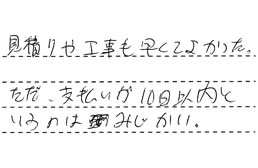 見積りや工事も早くてよかった。
ただ、支払いが10日以内と
いうのはみじかい。